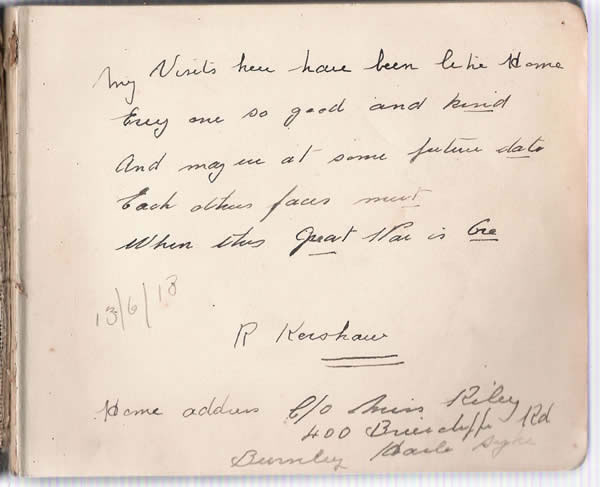 My Visits here have been like Home
Evey one so good and kind
And may we at some future date
Each others faces meet
When this Great War is Ore
13/6/18
R Kershaw
Home address C/o Miss Riley
400 Briercliffe Rd
Burnley Harle Syke